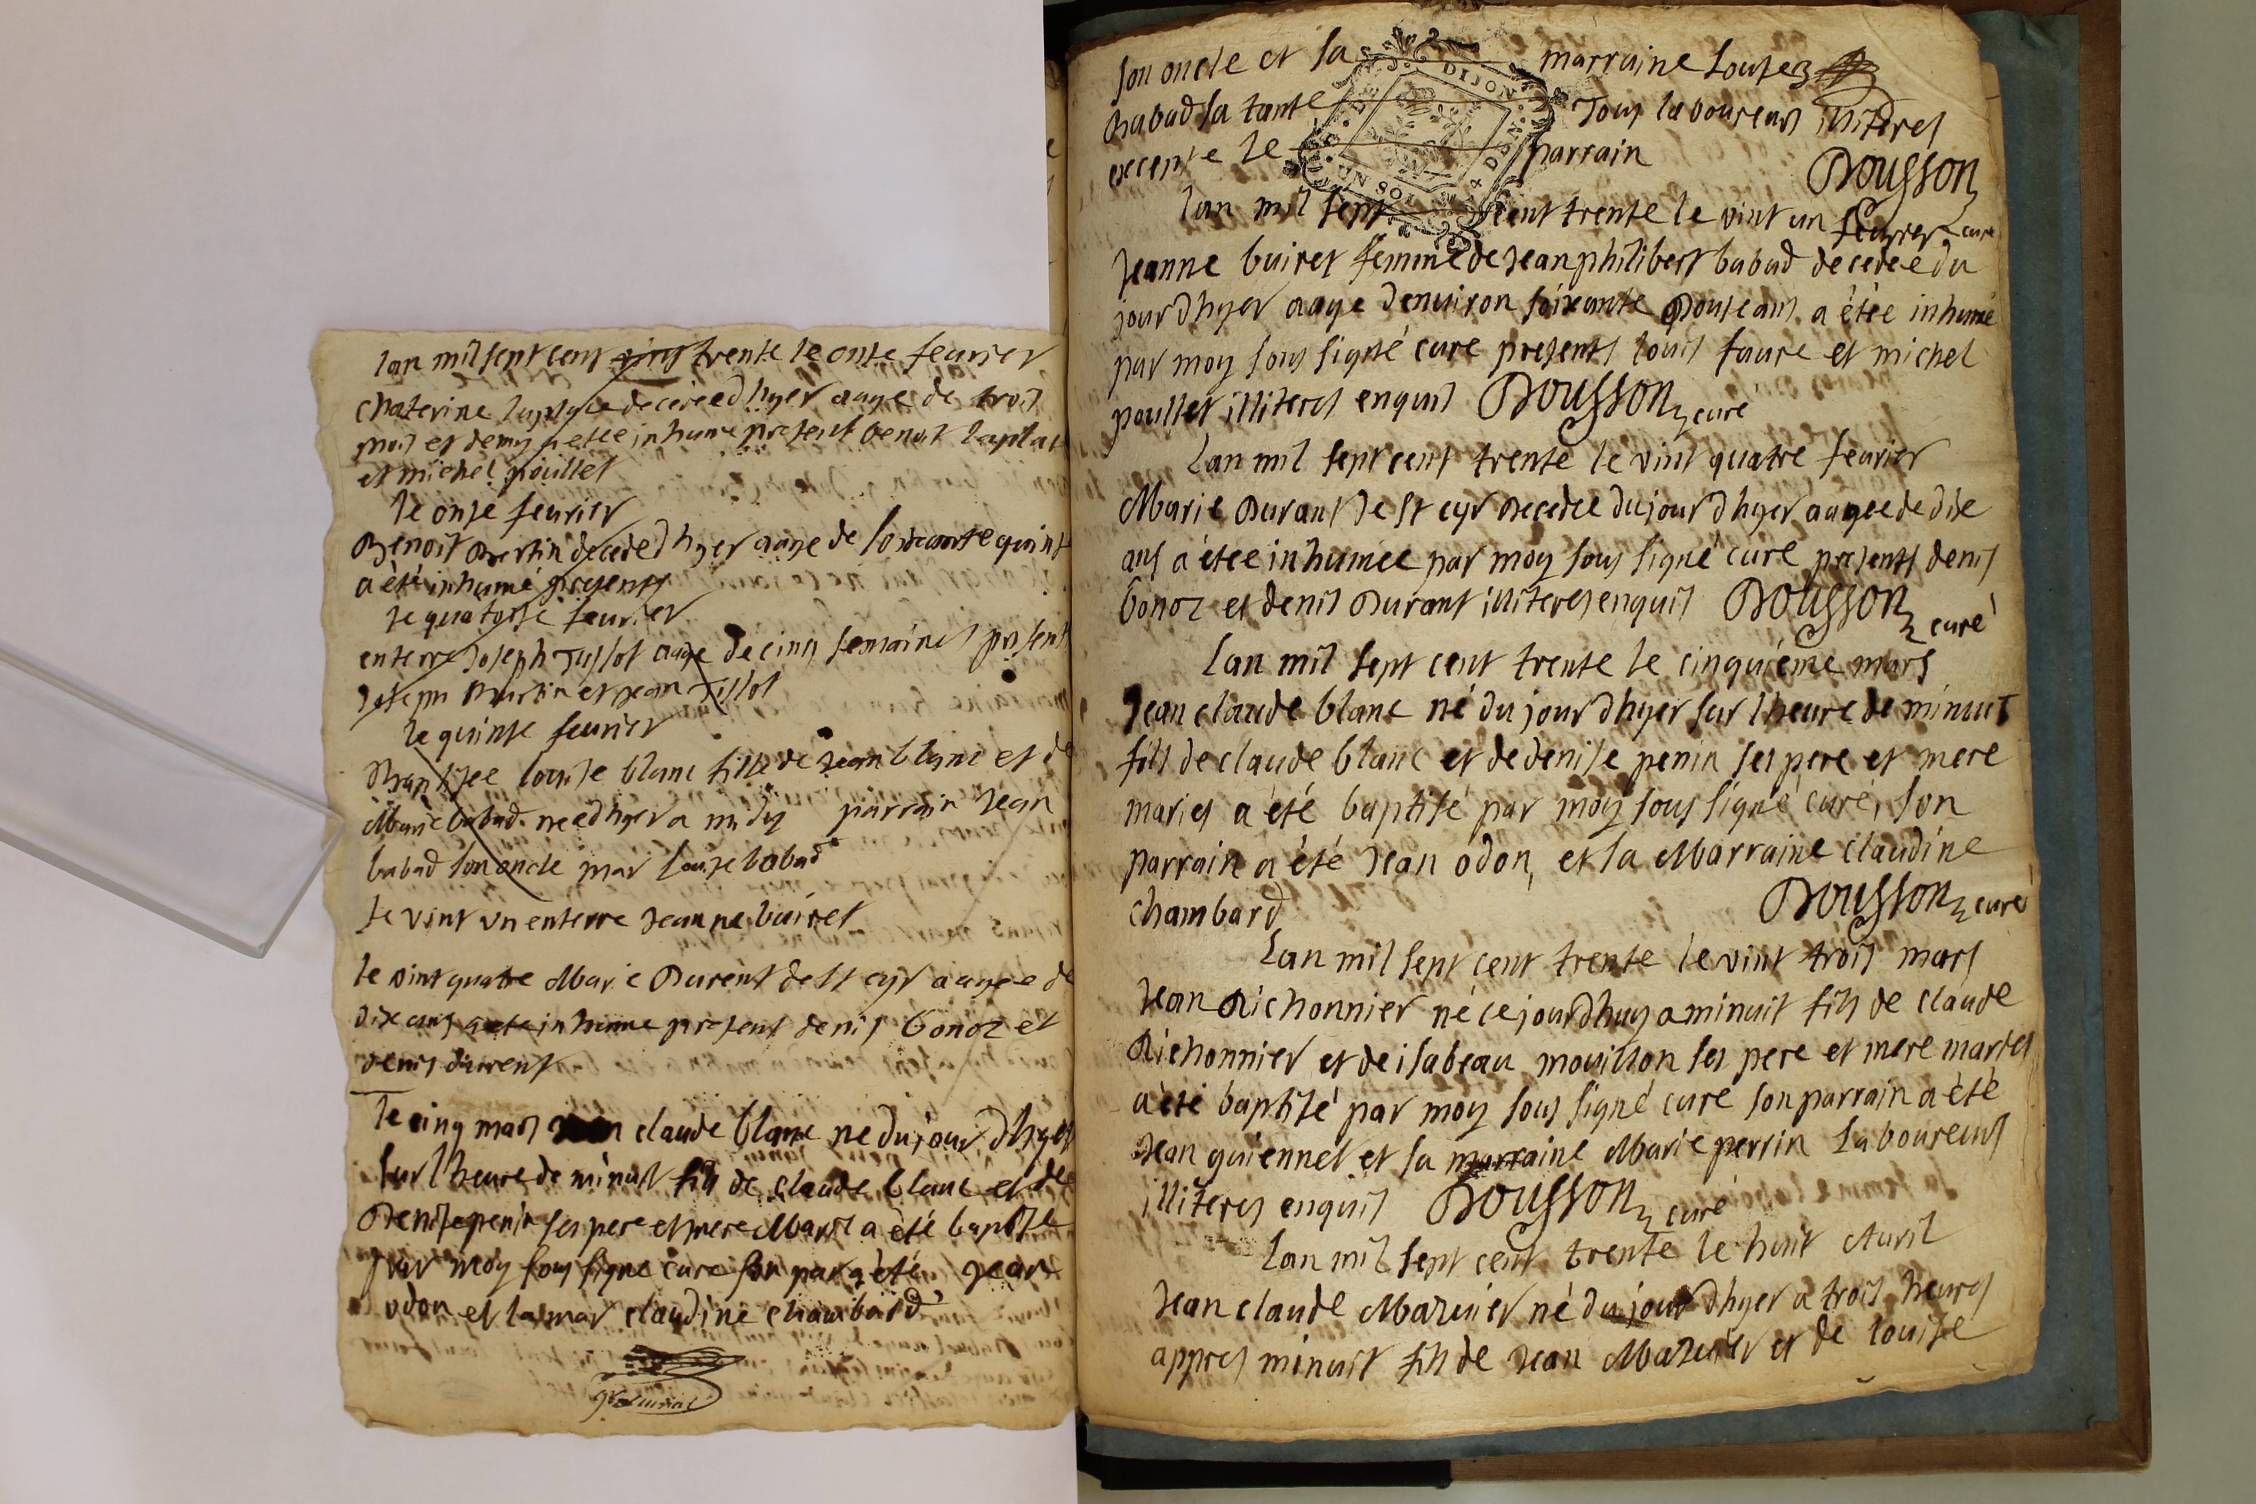 lan mil sept cent vint trente le onse feurier
Chaterine laplace decedee dhyer aage de trois
mois et demy a etee inhume present benoit laplac
et michel poullet
le onse feurier
Benoit Martin decede dhyer aage de soixante quinse
a été inhumé presents
le quatorse feurier
enterre Joseph Tissot aage de cinq semaines present
Joseph Martin et jean Tissot
le quinse feurier
Baptisee louise blanc fille de Jean blanc et de
Marie babad nee dhyer a midy parrain Jean
babad son oncle mar louise babad
le vint vn enterre Jeanne buiret
le vint quatre Marie Durent de st cyr aagee de
dix ans a ete inhume present denis bonoz et
denis durent
le cinq mars claude blanc né du jour dhyer
sur lheure de minuit fils de claude blanc et de
Denise penin ses pere et mere Maries a été baptise
par moy sous signe cure son par a été Jean
odon et la mar claudine chambard
son oncle et sa marraine Louise
babad sa tante Tous laboureurs illiteres
excepte le parrain
DIJON
UN SOL
Dousson curé
lan mil sept cent trente le vint un feurier
Jeanne buiret femme de Jean philibert babad decedeé du
jour dhyer aage denuiron soixante douse ans a étée inhumé
par moy sous signé curé presents louis faure et michel
poullet illiteres enquis Dousson curé
Lan mil sept cent trente le vint quatre feurier
Marie Durant de st cyr decedee du jour dhyer aagee de dix
ans a étee inhumee par moy sous signé curé presents denis
bonoz et denis Durant illiteres enquis Dousson curé
Lan mil sept cent trente le cinquiéme mars
Jean claude blanc né du jour dhyer sur lheure de minuit
fils de claude blanc et de denise penin ses pere et mere
maries a été baptisé par moy sous signé curé, son
parrain a été Jean odon, et sa Marraine claudine
chambard Dousson curé
Lan mil sept cent trente le vint trois mars
Jean Richonnier né ce jourdhuy a minuit fils de claude
Richonnier et de isabeau mouillon ses pere et mere maries
a été baptisé par moy sous signé curé son parrain a été
Jean guiennet et sa marraine Marie perrin Laboureurs
illiteres enquis Dousson curé
Lan mil sept cent trente le huit Auril
Jean claude Mazuier né du jour dhyer a trois heures
appres minuit fils de Jean Mazuier et de louise